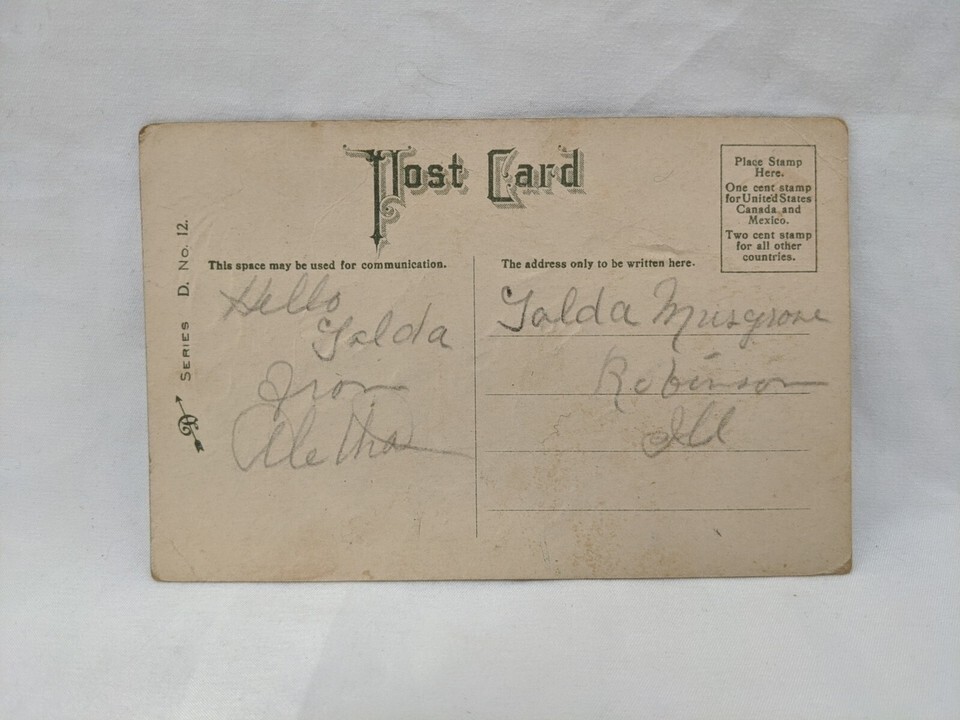 Post Card
Place Stamp
Here.
One cent stamp
for United States
Canada and
Mexico.
Two cent stamp
for all other
countries.
This space may be used for communication.
The address only to be written here.
SERIES D. No. 12.
Hello
Golda
From
Aletha
Golda Musgrove
Robinson
Ill